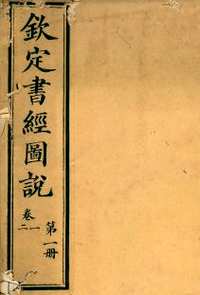 欽定書經圖說
卷一二
第一冊